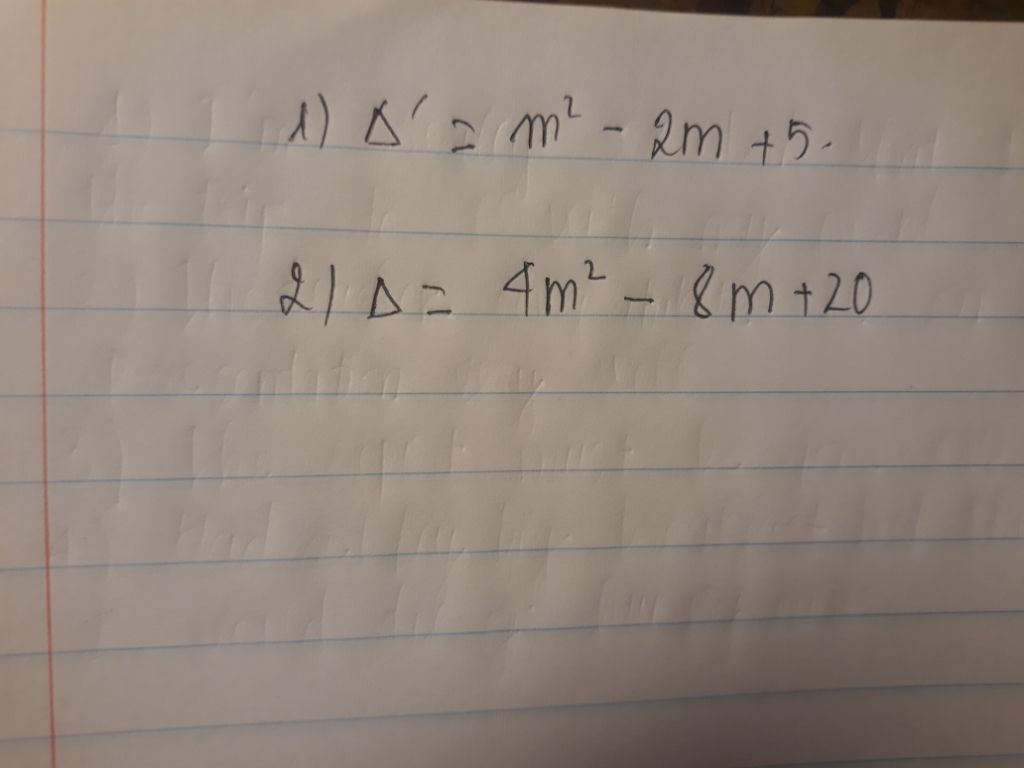 1) Δ' = m² - 2m + 5.
2) Δ = 4m² - 8m + 20